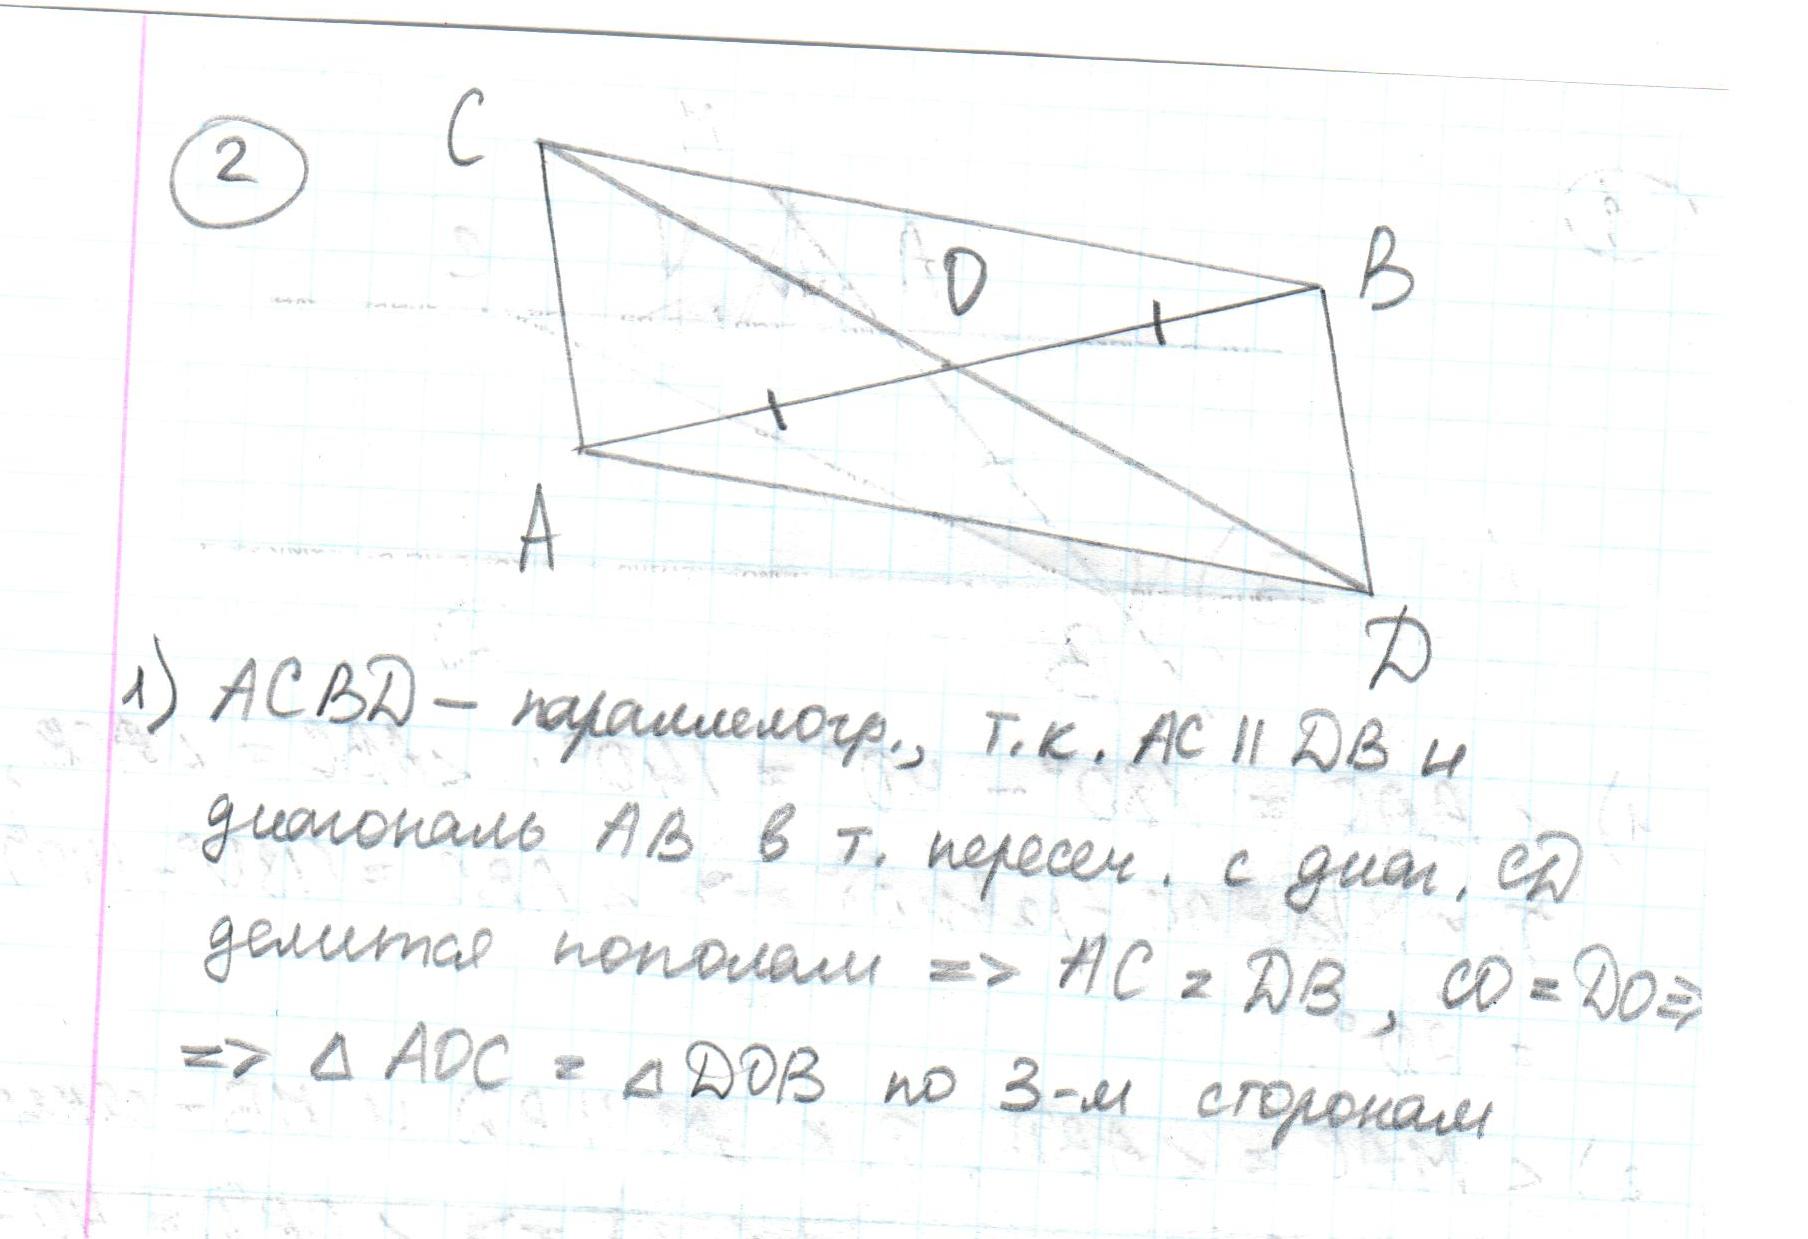 2
C
B
O
A
D
1) ACBD – параллелогр., т.к. AC || DB и
диагональ AB в т. пересеч. с диаг. CD
делится пополам => AC = DB, CO = DO =>
=> △ AOC = △ DOB по 3-м сторонам